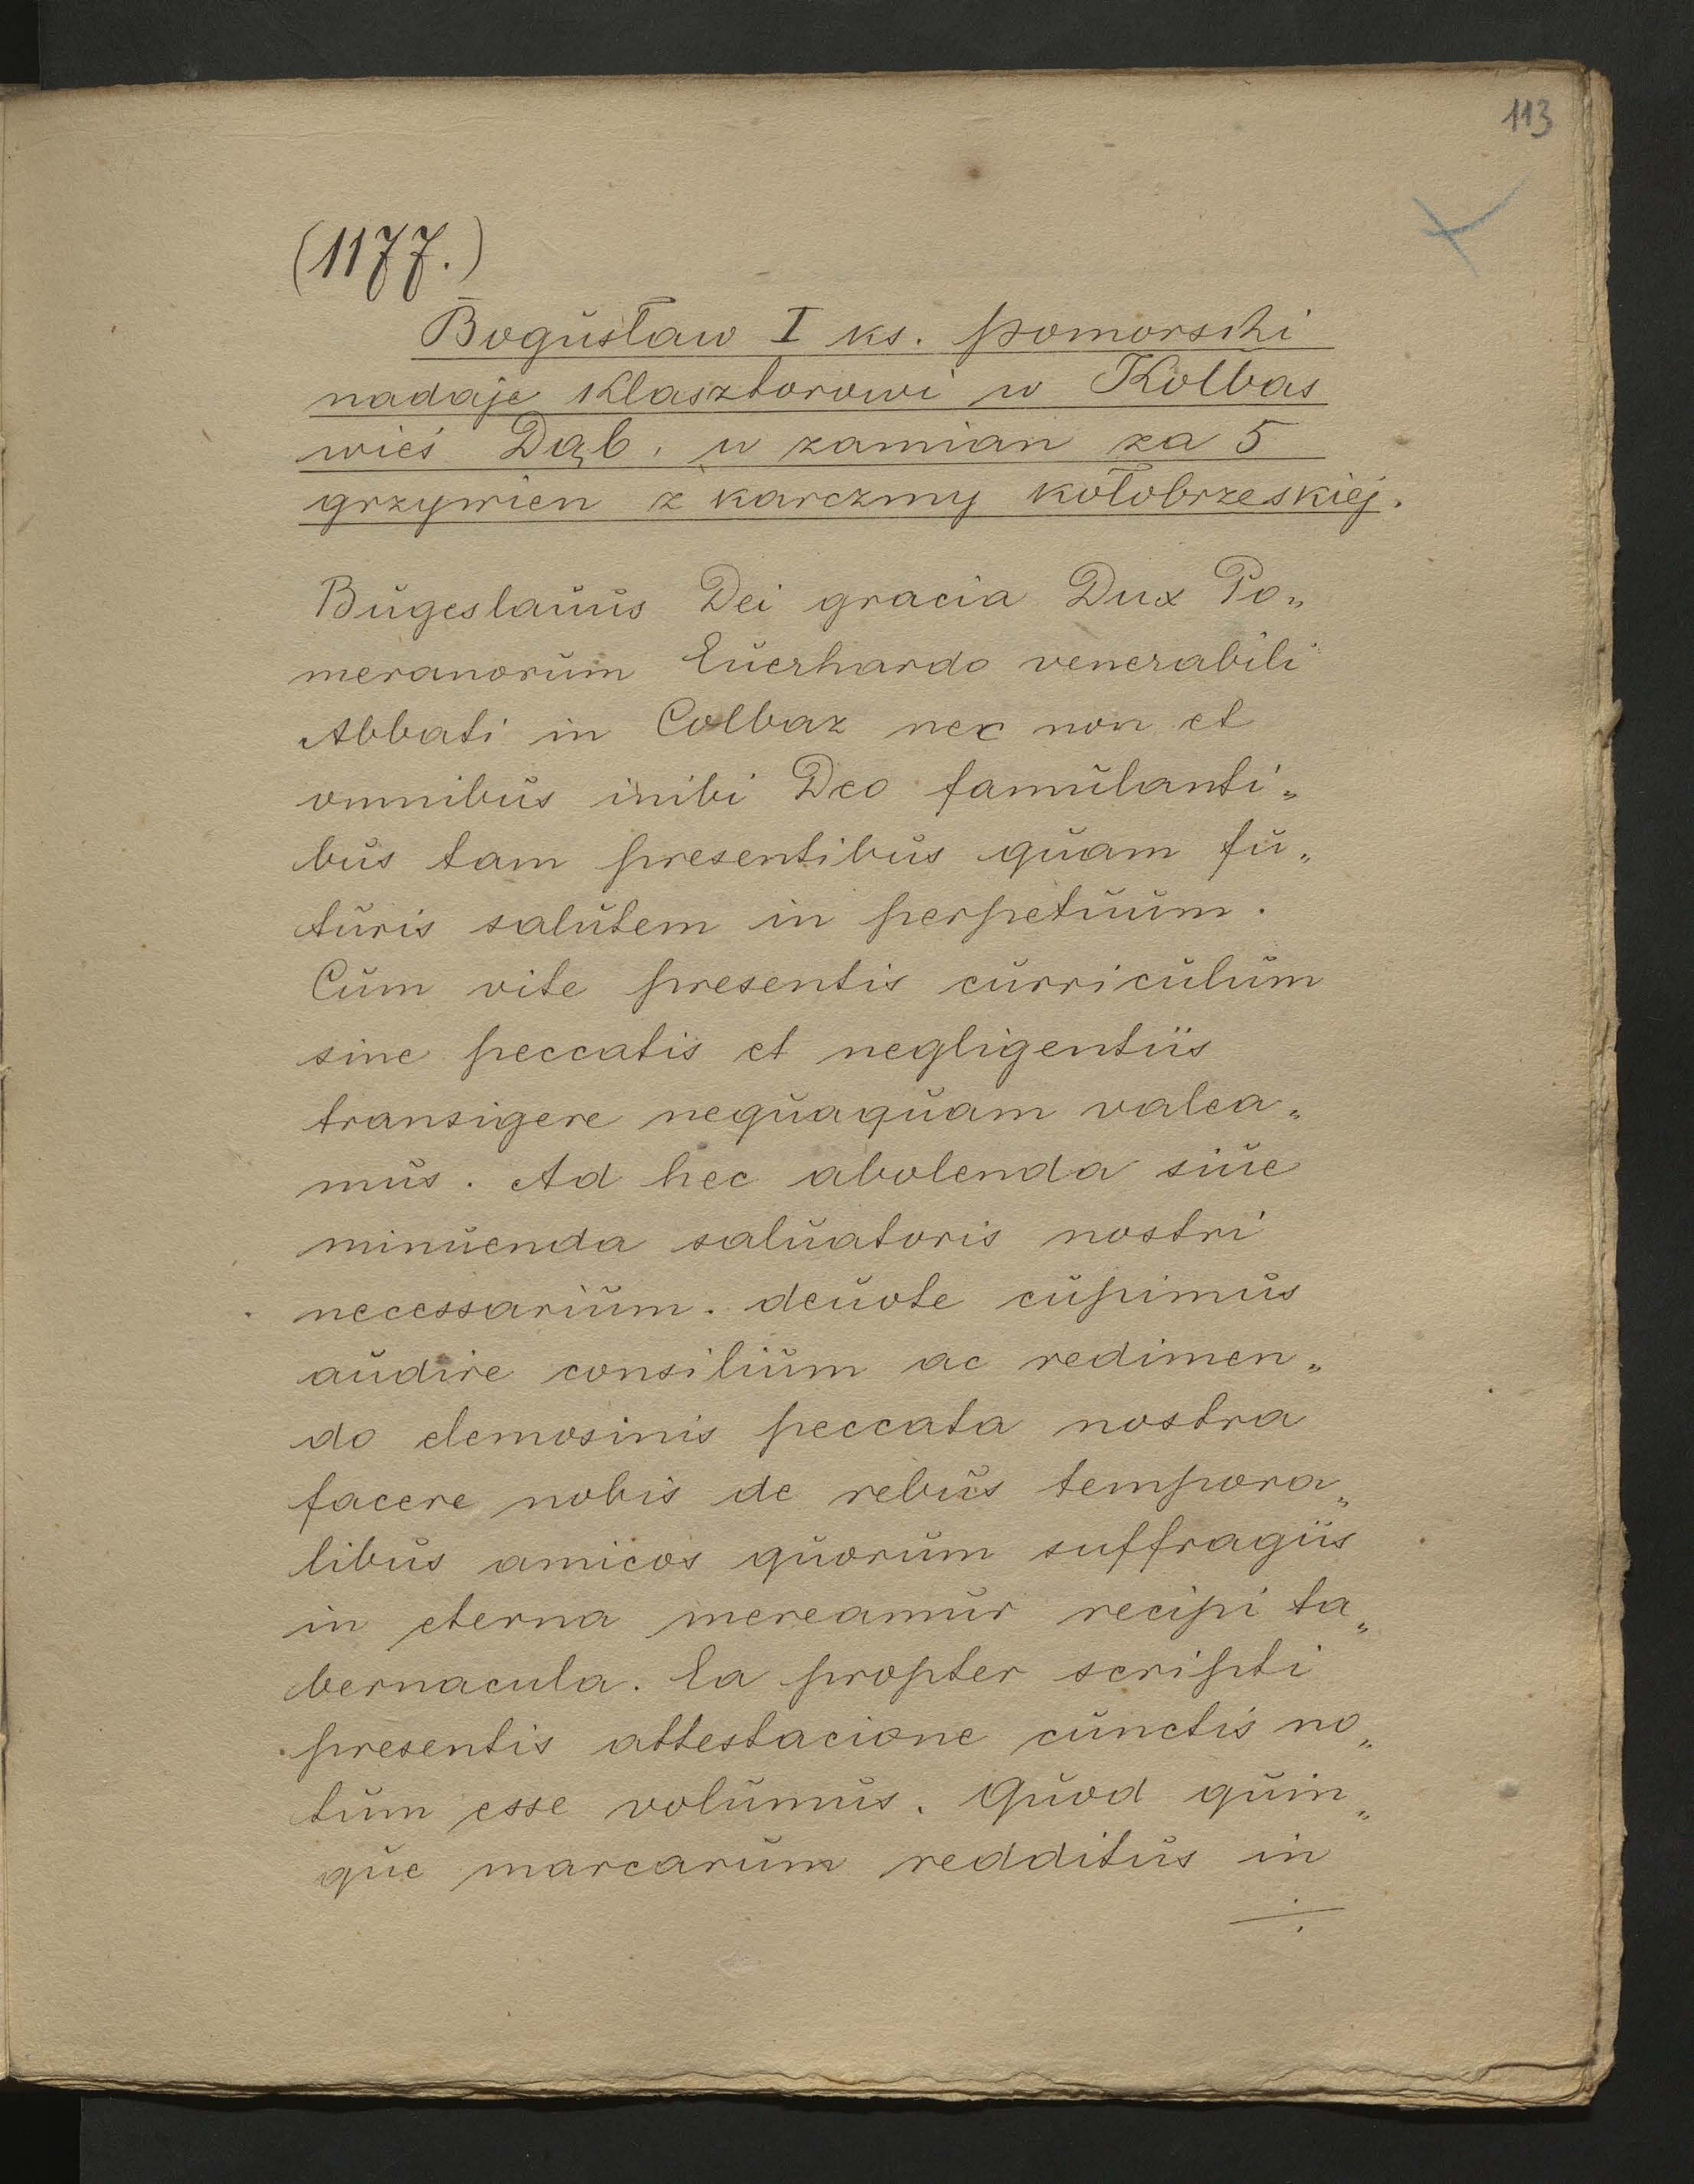 113
(1177.)
Bogusław I ks. pomorski
nadaje klasztorowi w Kolbas
wieś Dąb. w zamian za 5
grzywien z karczmy kołobrzeskiej.
Bugeslauus Dei gracia Dux Po„
meranorum Euerhardo venerabili
Abbati in Colbaz nec non et
omnibus inibi Deo famulanti„
bus tam presentibus quam fu„
turis salutem in perpetuum.
Cum vite presentis curriculum
sine peccatis et negligentiis
transigere nequaquam valea„
mus. Ad hec abolenda siue
minuenda saluatoris nostri
necessarium. deuote cupimus
audire consilium ac redimen„
do elemosinis peccata nostra
facere nobis de rebus tempora„
libus amicos quorum suffragiis
in eterna mereamur recipi ta„
bernacula. Ea propter scripti
presentis attestacione cunctis no„
tum esse volumus. Quod quin„
que marcarum redditus in
÷